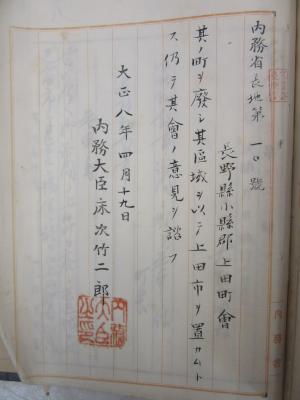 内務省長地第一〇號
長野縣小縣郡上田町會
其ノ町ヲ廢シ其區域ヲ以テ上田市ヲ置カムト
ス仍テ其會ノ意見ヲ諮フ
大正八年四月十九日
内務大臣床次竹二郎
内務大臣之印
内務省